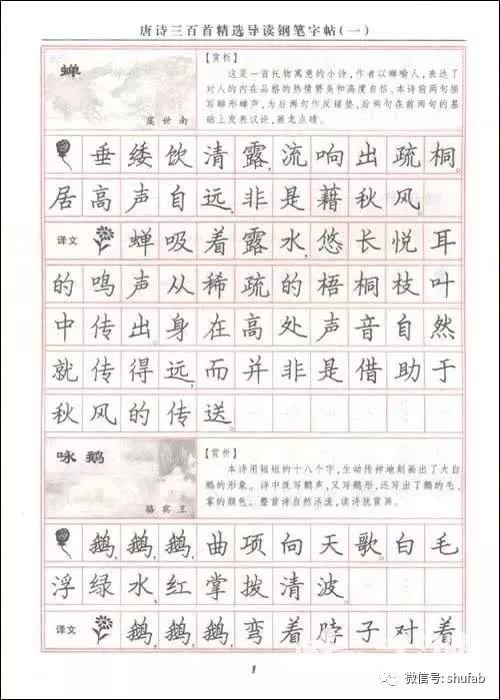 唐诗三百首精选导读钢笔字帖(一)
蝉
虞世南
【赏析】
这是一首托物寓意的小诗，作者以蝉喻人，表达了
对人的内在品格的热情赞美和高度自信。本诗前两句描
写蝉形蝉声，为后两句作反铺垫，后两句在前两句的基
础上发表议论，画龙点睛。
垂緌饮清露，流响出疏桐。
居高声自远，非是藉秋风。
译文 蝉吸着露水，悠长悦耳
的鸣声从稀疏的梧桐枝叶
中传出。身在高处声音自然
就传得远，而并非是借助于
秋风的传送。
咏鹅
骆宾王
【赏析】
本诗用短短的十八个字，生动传神地刻画出了大白
鹅的形象。诗中既写鹅声，又写鹅形，还写出了鹅的毛、
掌的颜色。整首诗自然洋溢，读诗犹赏画。
鹅，鹅，鹅，曲项向天歌。白毛
浮绿水，红掌拨清波。
译文 鹅，鹅，鹅，弯着脖子对着
1
微信号: shufab